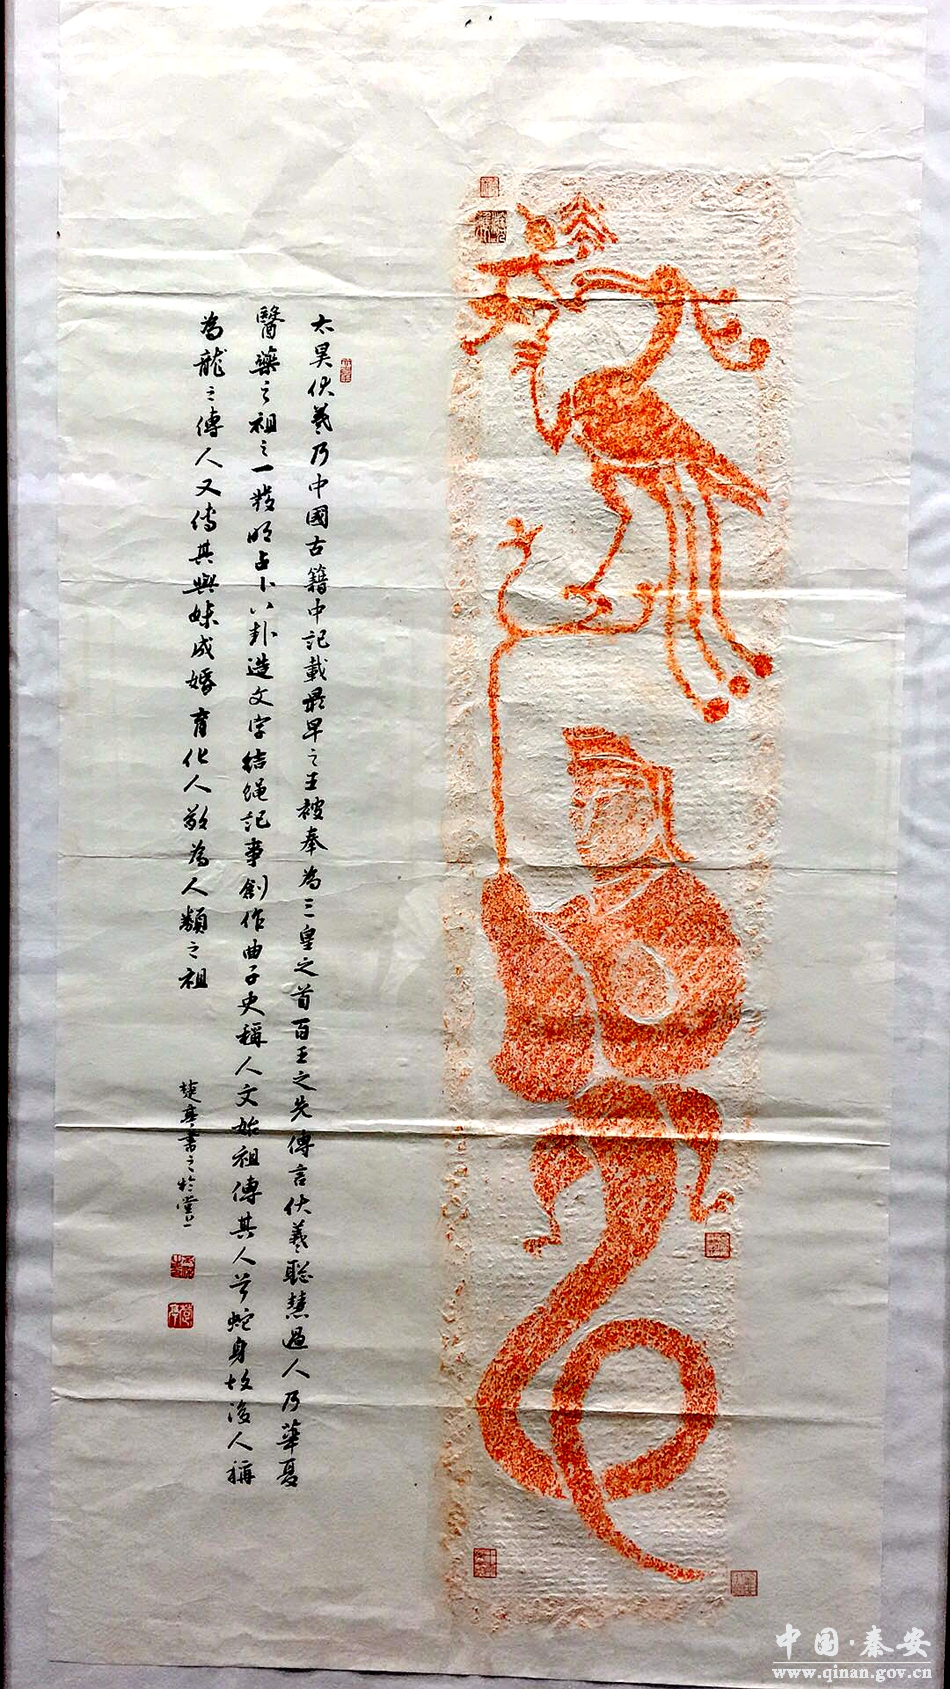 太昊伏羲乃中國古籍中記載最早之王被奉為三皇之首百王之先傳言伏羲聰慧過人乃華夏
醫藥之祖之一發明占卜八卦造文字結繩記事創作曲子史稱人文始祖傳其人首蛇身故後人稱
為龍之傳人又傳其與妹成婚育化人敬為人類之祖
書之於堂上
中国·秦安
www.qinan.gov.cn